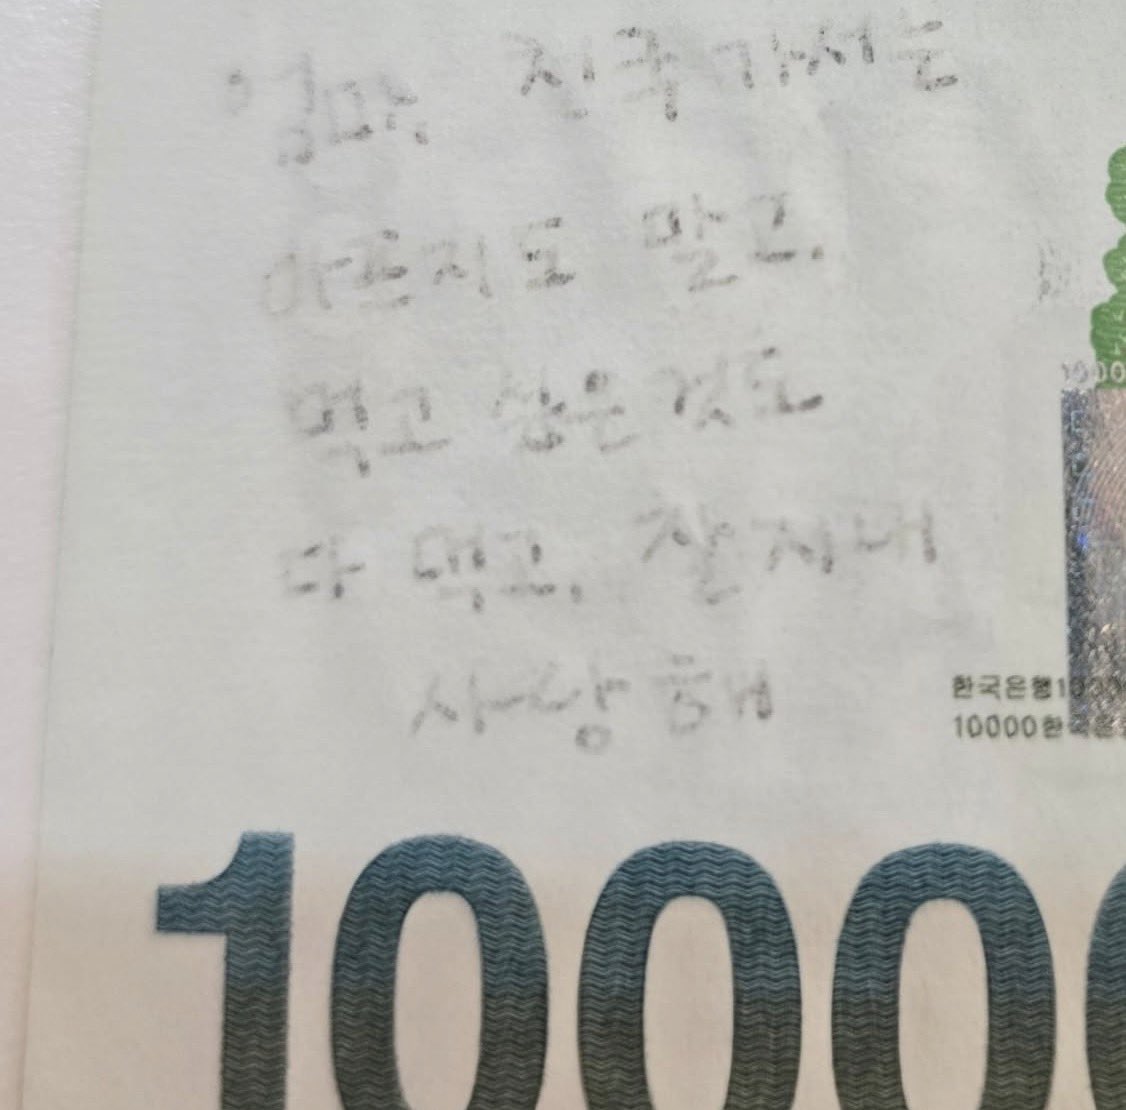 엄마, 천국가서는
아프지도 말고.
먹고 싶은 것도
다 먹고. 잘 지내
사랑해
한국은행10000
10000한국은
10000